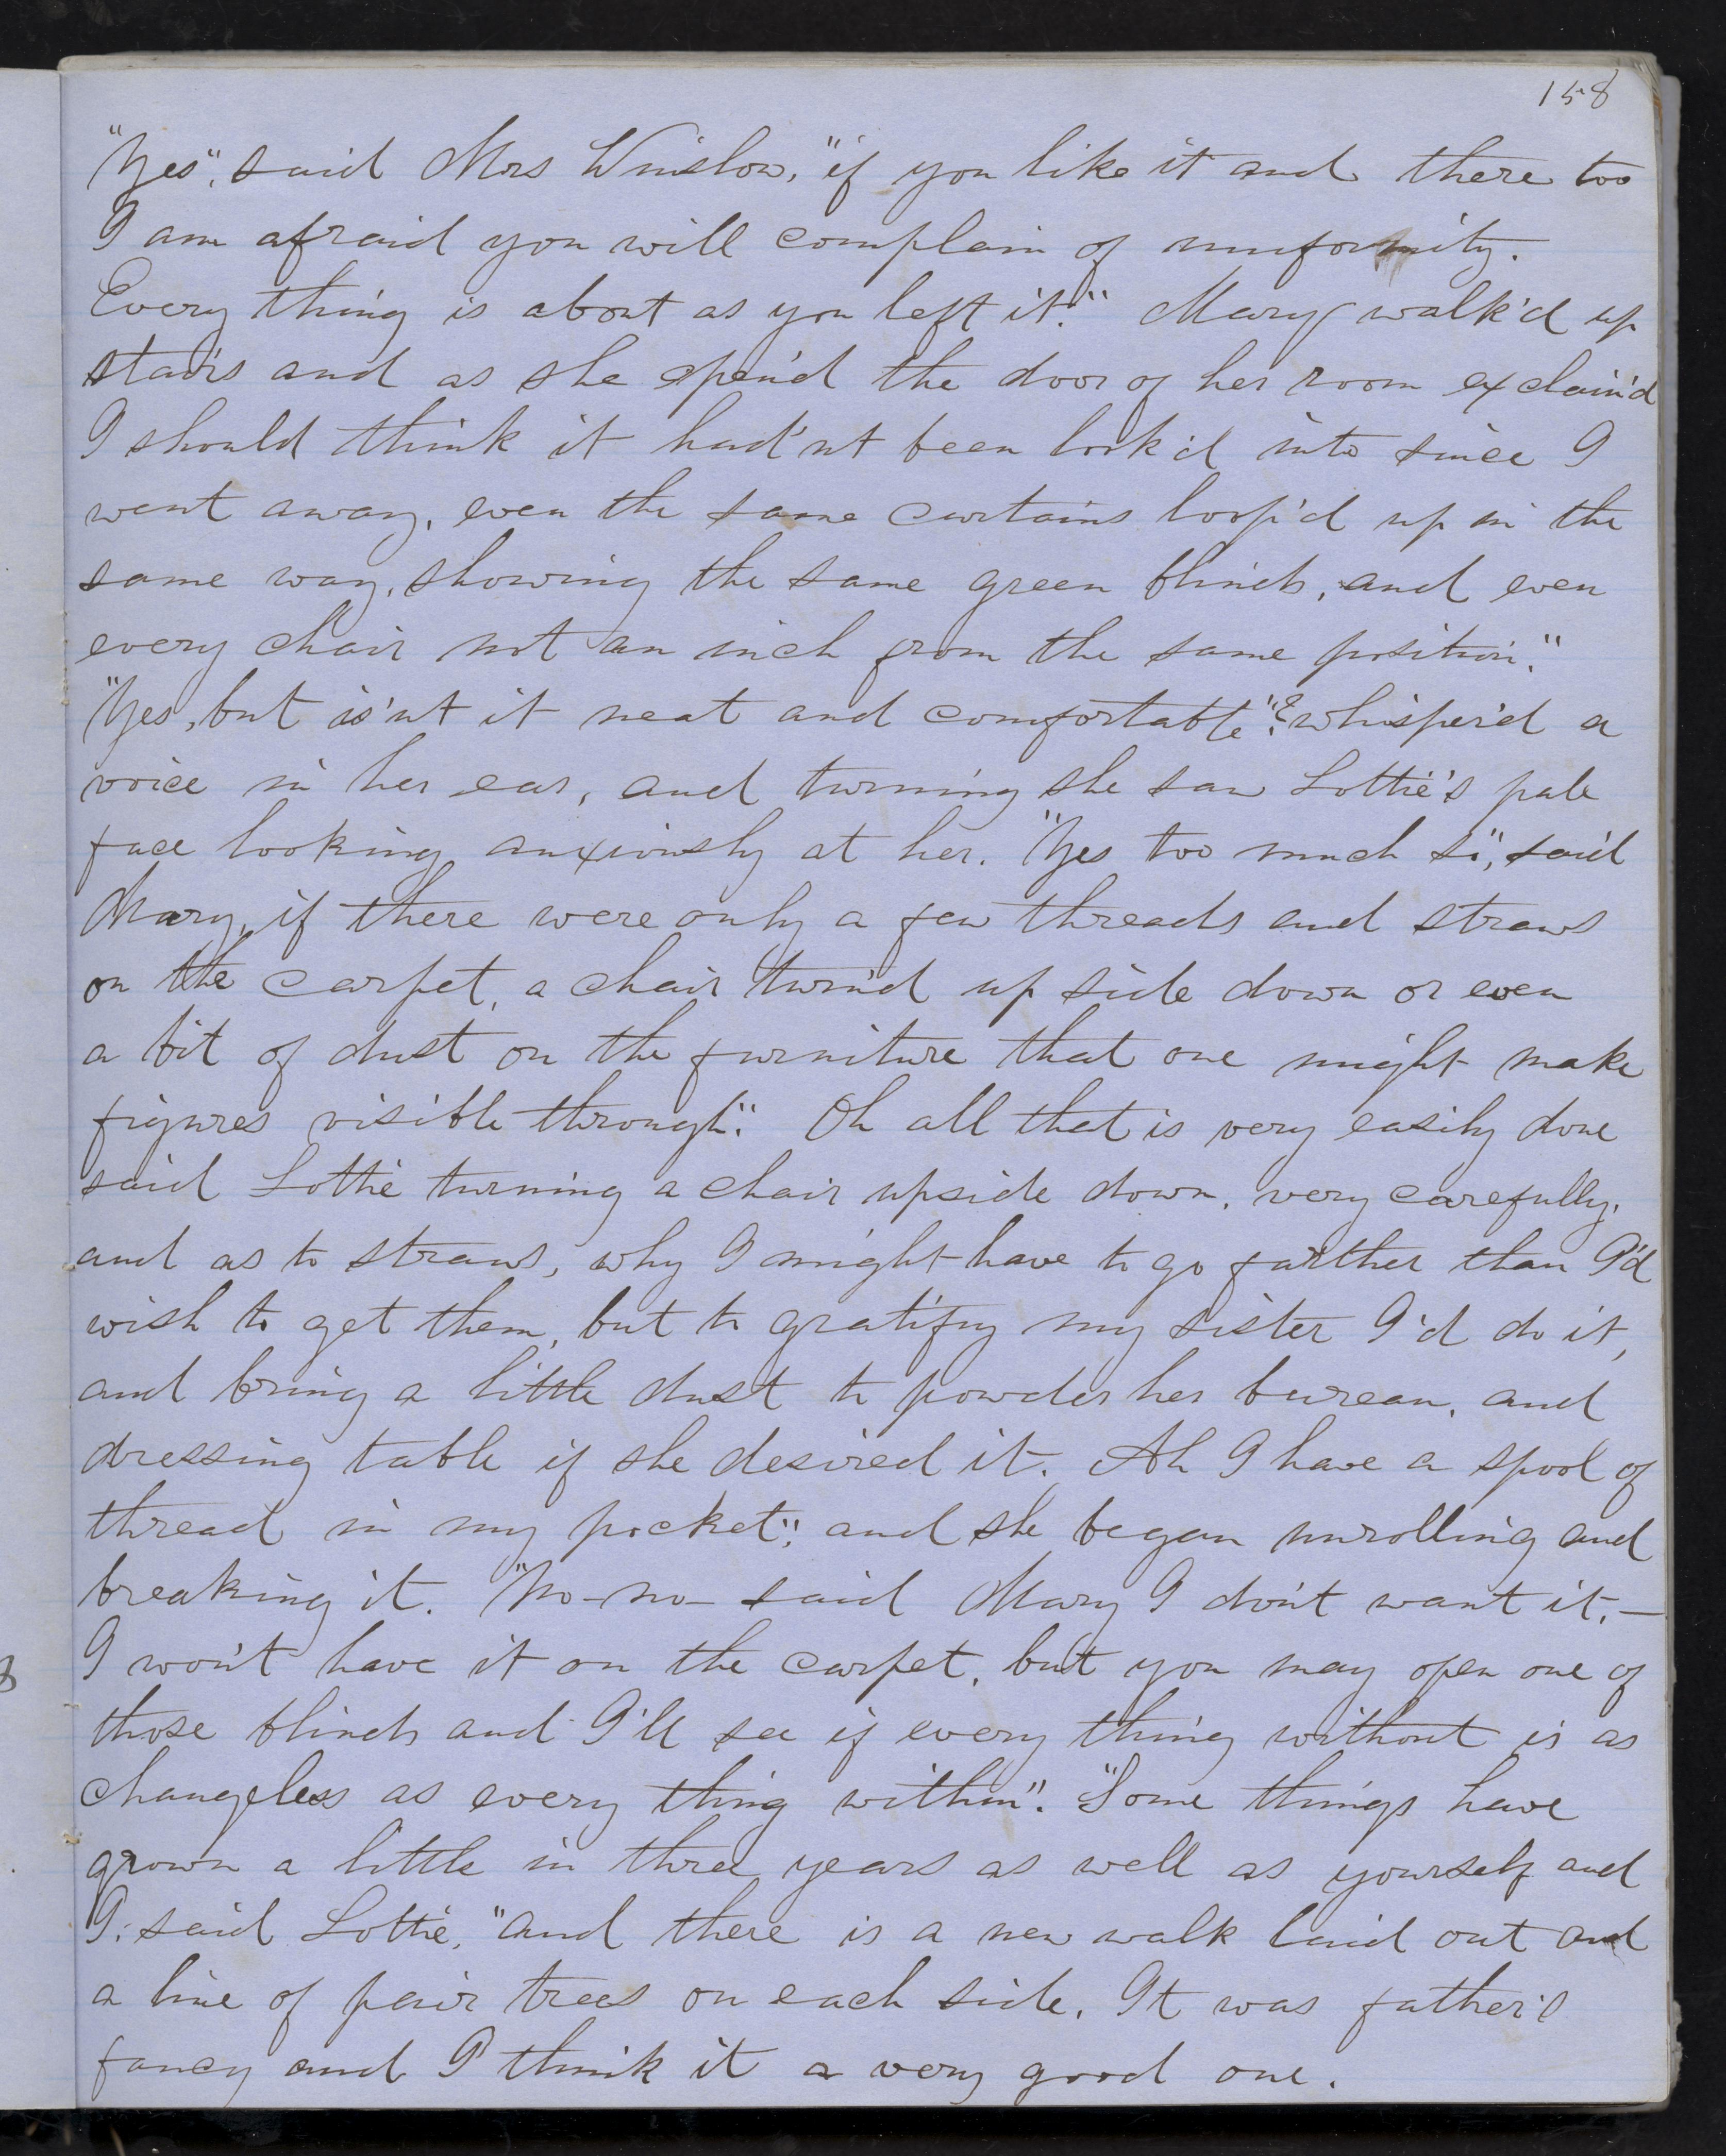 158
"Yes", said Mrs Winslow, "if you like it and there too
I am afraid you will complain of uniformity.
Every thing is about as you left it." Mary walk'd up
stairs and as she open'd the door of her room exclaim'd
I should think it had'nt been look'd into since I
went away, even the same curtains loop'd up in the
same way, showing the same green blinds, and even
every chair not an inch from the same position."
"Yes, but is'nt it neat and comfortable"? whisper'd a
voice in her ear, and turning she saw Lottie's pale
face looking anxiously at her. "Yes too much so", said
Mary, if there were only a few threads and straws
on the carpet, a chair turn'd up side down or even
a bit of dust on the furniture that one might make
figures visible through". Oh all that is very easily done
said Lottie turning a chair upside down, very carefully,
and as to straws, why I might have to go farther than I'd
wish to get them, but to gratify my sister I'd do it,
and bring a little dust to powder her bureau, and
dressing table if she desired it. Ah I have a spool of
thread in my pocket", and she began unrolling and
breaking it. "No - no - said Mary I don't want it. —
I won't have it on the carpet, but you may open one of
those blinds and I'll see if every thing without is as
changeless as every thing within". "Some things have
grown a little in three years as well as yourself and
I, said Lottie, "and there is a new walk laid out and
a line of pair trees on each side. It was father's
fancy and I think it a very good one.